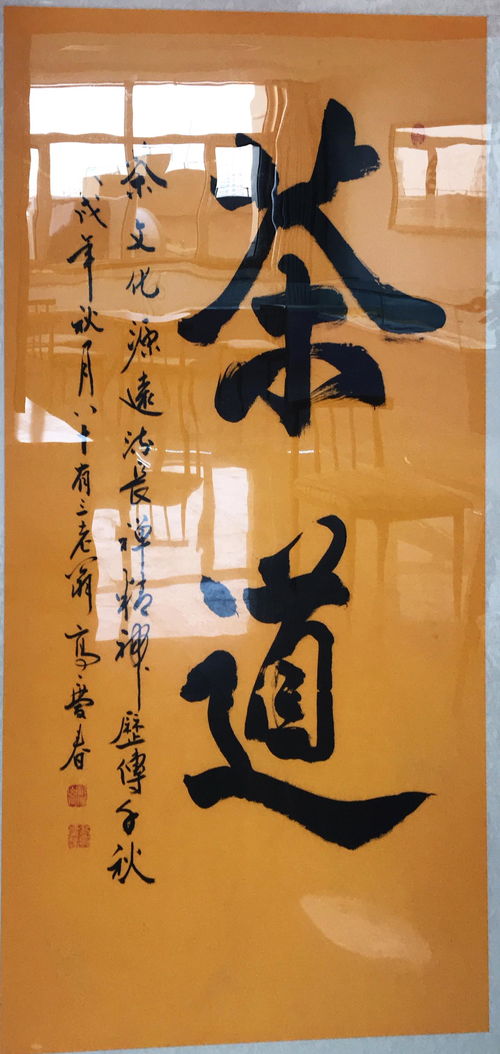 茶道
茶文化源遠流長禅精神歷傳千秋
戌年秋月八十有三老翁 高春